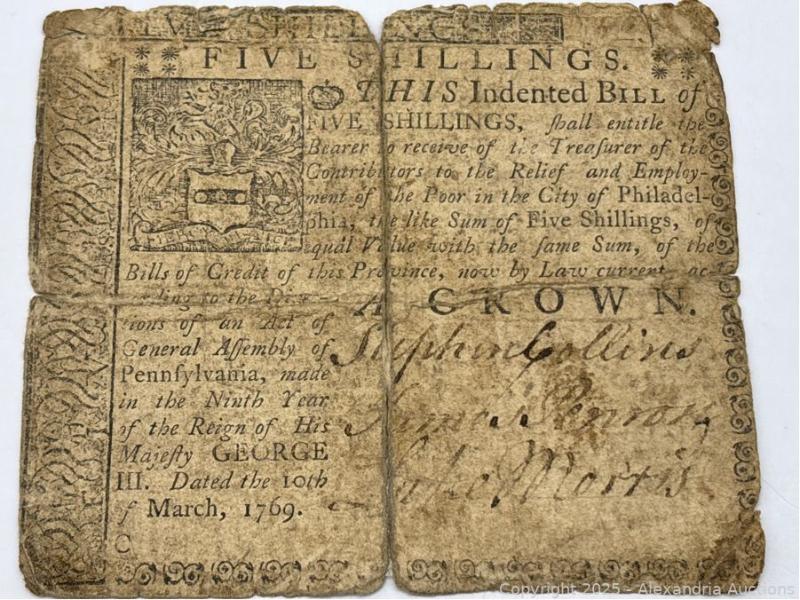 FIVE SHILLINGS.
THIS Indented BILL of
FIVE SHILLINGS, ſhall entitle the
Bearer to receive of the Treaſurer of the
Contributors to the Relief and Employ-
ment of the Poor in the City of Philadel-
phia, the like Sum of Five Shillings, of
equal Value with the ſame Sum, of the
Bills of Credit of this Province, now by Law current, ac-
cording to the
A CROWN.
tions of an Act of
General Aſſembly of
Pennſylvania, made
in the Ninth Year
of the Reign of His
Majeſty GEORGE
III. Dated the 10th
of March, 1769.
C
Stephen Collins
Penrose
Morris
Copyright 2025 - Alexandria Auctions